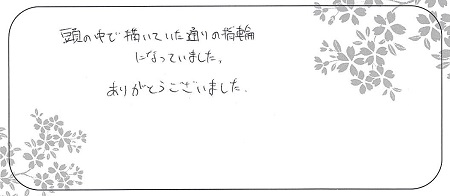 頭の中で描いていた通りの指輪
になっていました。
ありがとうございました。